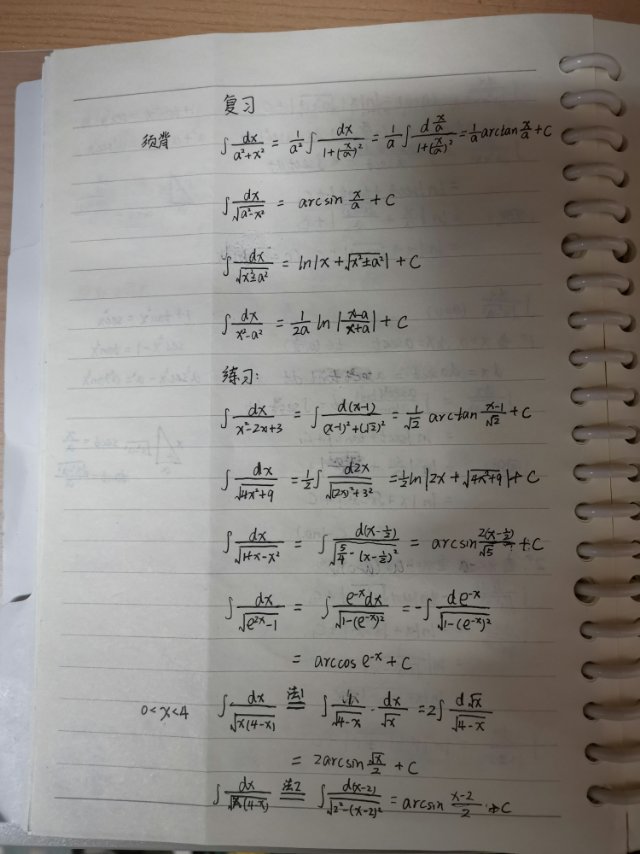 复习
须背 ∫ dx/(a²+x²) = 1/a² ∫ dx/(1+(x/a)²) = 1/a ∫ d(x/a)/(1+(x/a)²) = 1/a arctan x/a + C
∫ dx/√(a²-x²) = arcsin x/a + C
∫ dx/√(x²±a²) = ln|x+√(x²±a²)| + C
∫ dx/(x²-a²) = 1/2a ln|(x-a)/(x+a)| + C
练习:
∫ dx/(x²-2x+3) = ∫ d(x-1)/((x-1)²+(√2)²) = 1/√2 arctan (x-1)/√2 + C
∫ dx/√(4x²+9) = 1/2 ∫ d2x/√((2x)²+3²) = 1/2 ln|2x+√(4x²+9)| + C
∫ dx/√(1+x-x²) = ∫ d(x-1/2)/√(5/4-(x-1/2)²) = arcsin 2(x-1/2)/√5 + C
∫ dx/√(e²ˣ-1) = ∫ e⁻ˣdx/√(1-(e⁻ˣ)²) = -∫ de⁻ˣ/√(1-(e⁻ˣ)²)
= arccos e⁻ˣ + C
0<x<4 ∫ dx/√(x(4-x)) 法1 = ∫ 1/√(4-x) · dx/√x = 2∫ d√x/√(4-x)
= 2arcsin √x/2 + C
∫ dx/√(x(4-x)) 法2 = ∫ d(x-2)/√(2²-(x-2)²) = arcsin (x-2)/2 + C